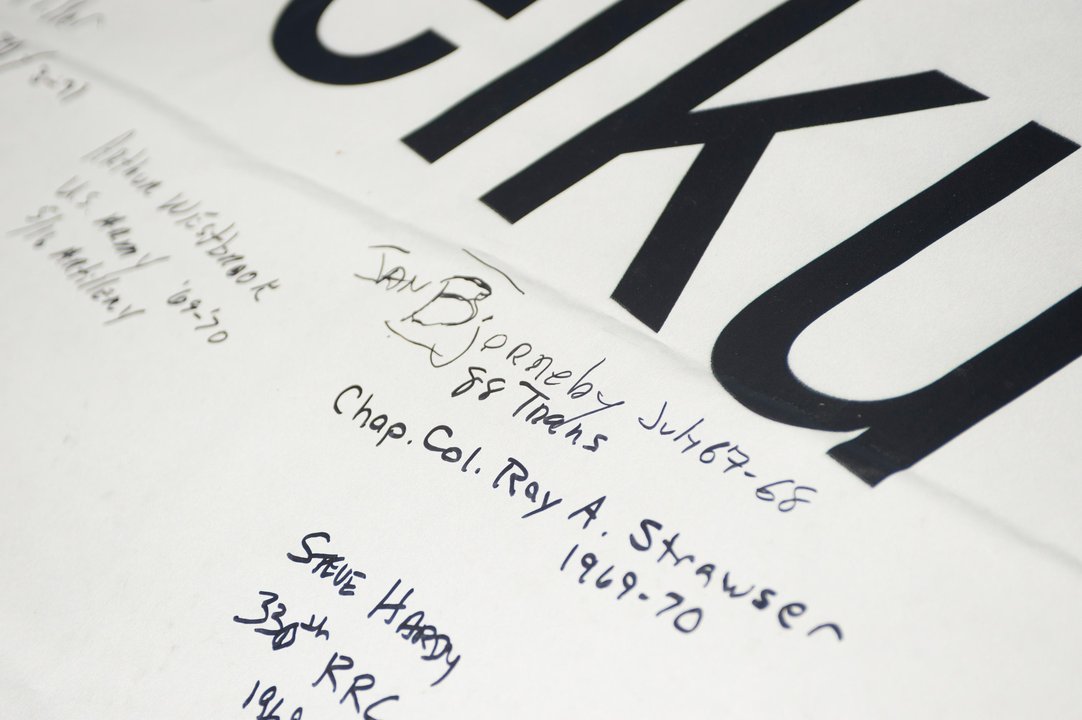 eiku
71
Arthur Westbrook
U.S. Army '69-70
5/16 Artillery
Jan Bjorneby July 67-68
88 Trans
Chap. Col. Ray A. Strawser
1969-70
Steve Hardy
330th RRC